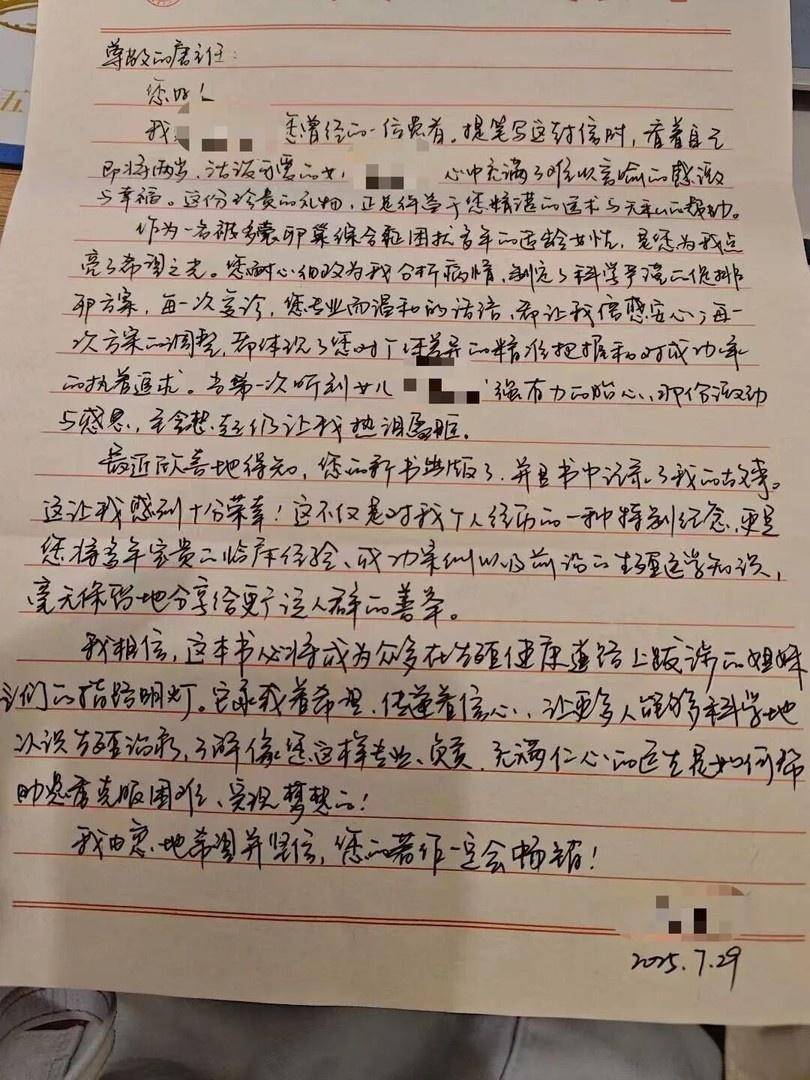 尊敬的唐主任：
您好！
我 您曾经的一位患者。提笔写这封信时，看着自己
即将两岁、活泼可爱的女， 心中充满了难以言喻的感激
与幸福。这份珍贵的礼物，正是得益于您精湛的医术与无私的帮助。
作为一名被多囊卵巢综合征困扰多年的高龄女性，是您为我点
亮了希望之光。您耐心细致为我分析病情，制定了科学严谨的促排
卵方案，每一次复诊，您专业而温和的话语，都让我倍感安心；每一
次方案的调整，都体现了您对个体差异的精准把握和对成功率
的执着追求。当第一次听到女儿 强有力的胎心，那份激动
与感恩，至今想起仍让我热泪盈眶。
最近欣喜地得知，您的新书出版了，并且书中记录了我的故事。
这让我感到十分荣幸！这不仅是对我个人经历的一种特别纪念，更是
您将多年宝贵的临床经验、成功案例以及前沿的生殖医学知识，
毫无保留地分享给更广泛人群的善举。
我相信，这本书必将成为众多在生殖健康道路上跋涉的姐妹
们的指路明灯。它承载着希望、传递着信心，让更多人能够科学地
认识生殖治疗，了解像您这样专业、负责、充满仁心的医生是如何帮
助患者克服困难、实现梦想的！
我由衷地希望并坚信，您的著作一定会畅销！
2025.7.29
五